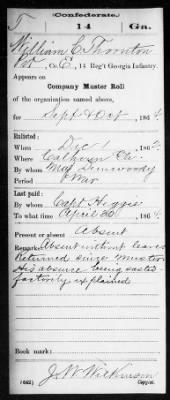 (Confederate.)
T 14 Ga.
William C. Thornton
Pvt, Co. E, 14 Reg't Georgia Infantry.
Appears on
Company Muster Roll
of the organization named above,
for Sept & Oct, 1864.
Enlisted:
When Dec 1, 186
Where Calhoun
By whom Maj Dunwoody
Period War
Last paid:
By whom Capt Higgie
To what time April 30, 1864.
Present or absent Absent
Remarks: Absent without leave
Returned since muster
His absence being satis
factorily explained
Book mark:
J. W. Wilkinson
(642) Copyist.